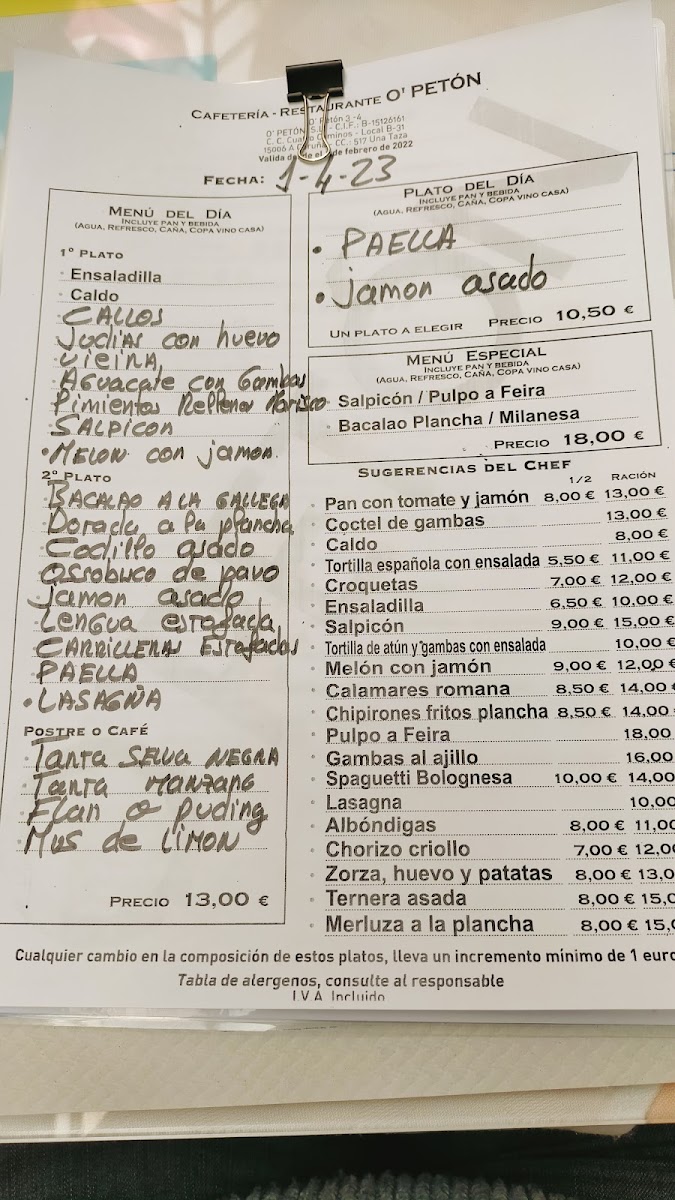 CAFETERÍA - RESTAURANTE O' PETÓN
O' Petón 3-4
O' PETÓN S.L. - C.I.F.: B-15126161
C. C. Cuatro Caminos - Local B-31
15006 A Coruña CC.: 517 Una Taza
Valida desde el de febrero de 2022
FECHA: 1-4-23
MENÚ DEL DÍA
INCLUYE PAN Y BEBIDA
(AGUA, REFRESCO, CAÑA, COPA VINO CASA)
1º PLATO
Ensaladilla
Caldo
CALLOS
Judías con huevo
vieira
Aguacate con Gambas
Pimientos Rellenos Marisco
SALPICON
MELON con jamon.
2º PLATO
BACALAO A LA GALLEGA
Dorada a la plancha
Codillo asado
ossobuco de pavo
jamon asado
Lengua estofada
CARRILLERAS Estofadas
PAELLA
LASAGÑA
POSTRE O CAFÉ
Tarta SELVA NEGRA
Tarta MANZANA
Flan o puding
Mus de LIMON
PRECIO 13,00 €
PLATO DEL DÍA
INCLUYE PAN Y BEBIDA
(AGUA, REFRESCO, CAÑA, COPA VINO CASA)
PAELLA
jamon asado
UN PLATO A ELEGIR PRECIO 10,50 €
MENÚ ESPECIAL
INCLUYE PAN Y BEBIDA
(AGUA, REFRESCO, CAÑA, COPA VINO CASA)
Salpicón / Pulpo a Feira
Bacalao Plancha / Milanesa
PRECIO 18,00 €
SUGERENCIAS DEL CHEF
1/2 RACIÓN
Pan con tomate y jamón 8,00 € 13,00 €
Coctel de gambas 13,00 €
Caldo 8,00 €
Tortilla española con ensalada 5,50 € 11,00 €
Croquetas 7,00 € 12,00 €
Ensaladilla 6,50 € 10,00 €
Salpicón 9,00 € 15,00 €
Tortilla de atún y gambas con ensalada 10,00 €
Melón con jamón 9,00 € 12,00 €
Calamares romana 8,50 € 14,00 €
Chipirones fritos plancha 8,50 € 14,00
Pulpo a Feira 18,00
Gambas al ajillo 16,00
Spaguetti Bolognesa 10,00 € 14,00
Lasagna 10,00
Albóndigas 8,00 € 11,00
Chorizo criollo 7,00 € 12,0
Zorza, huevo y patatas 8,00 € 13,0
Ternera asada 8,00 € 15,0
Merluza a la plancha 8,00 € 15,
Cualquier cambio en la composición de estos platos, lleva un incremento mínimo de 1 euro
Tabla de alergenos, consulte al responsable
I.V.A. Incluido